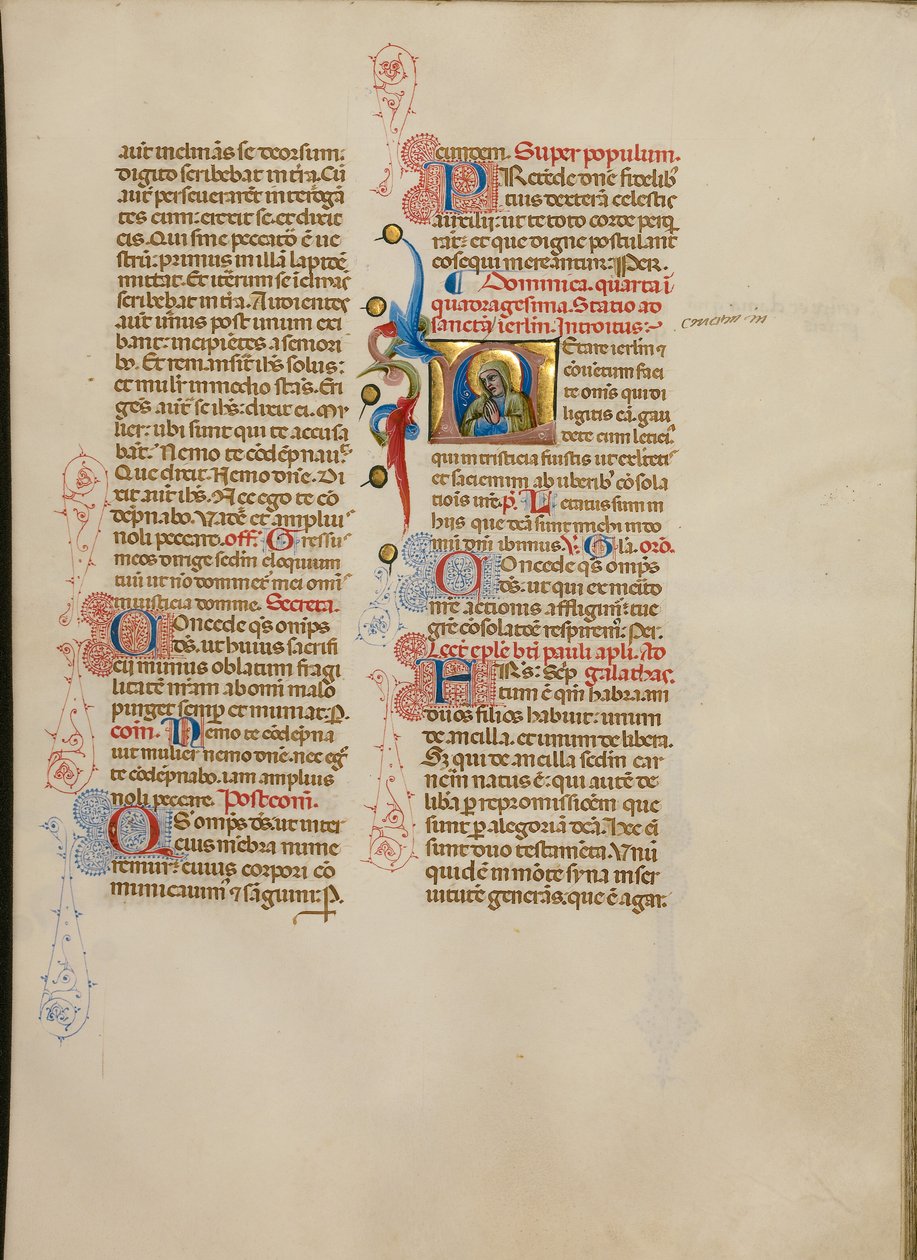 aut̄ inclinās se deorsum:
digito scribebat in tr̄a. Cū
aut̄ perseverarēt interogā
tes eum: erexit se. et dixit
eis. Qui sine peccato ē ue
strū: primus in illā lapidē
mittat. Et iterum se īclinās
scribebat in tr̄a. Audientes
aut̄ unus post unum exi
bant: incipiētes a seniori
bꝰ. Et remansit ih̄s solus:
et muli᷑ in medio stās. Eri
gēs aut̄ se ih̄s: dixit ei. Mu
lier: ubi sunt qui te accusa
bāt: Nemo te cōdēpnauit.
Que dixit. Nemo dn̄e. Di
xit aut̄ ih̄s. Nec ego te cō
dēpnabo. Vade et ampliuˢ
noli peccare. off. Gressuˢ
meos dirige sedm̄ eloquium
tuū ut nō dominet᷑ mei omīˢ
iniusticia domine. Secreta.
Concede qs̄ omīps
ds̄. ut huius sacrifi
cii munus oblatum fragi
litatē nr̄am ab omi malo
purget semꝑ et muniat. P.
com. Nemo te cōdēpna
uit mulier nemo dn̄e. nec egᷓ
te cōdēpnabo. iam amplius
noli peccare. Postcom̄.
Qs omīps ds̄. ut inter
eius mēbra nume
remur: cuius corpori cō
municauim᷑ ⁊ sāguini: P.
eundem. Super populum.
Pretēde dn̄e fidelibꝰ
tuis dexterā celestis
auxilii: ut te toto corde perq̄
rāt: et que digne postulant
cōsequi mereantur: Per.
¶ Dominica. quarta ī
quadragesima. Statio ad
sanctā ierlm̄. Introitus:
Letare ierlm̄ ⁊
cōuētum faci
te om̄s qui di
ligitis eā. gau
dete cum leticia.
qui in tristicia fuistis ut exlt̄etiˢ
et saciemini ab uberibꝰ cōsola
tiois ur̄e. p̄. Letatus sum in
hiis que dc̄a sunt michi in do
mū dn̄i ibimus. V. Gla. oro.
Concede qs̄ omīps
ds̄. ut qui ex meito
nr̄e actionis affligim᷑: tue
gr̄e cōsolatōe respirem᷑. Per.
Lect̄ eple bt̄i pauli apl̄i. Ad
FRs: Scp̄ galathas.
tum ē qm̄ habraam
duos filios habuit: unum
de ancilla. et unum de libera.
Sꝫ qui de ancilla sedm̄ car
nem natus ē: qui autē de
libͣa ꝑ repromissiōem que
sunt ꝑ alegoriā dc̄a. Hec em̄
sunt duo testamēta. Vnū
quidē in mōte syna in ser
uitutē generās. que ē agar.